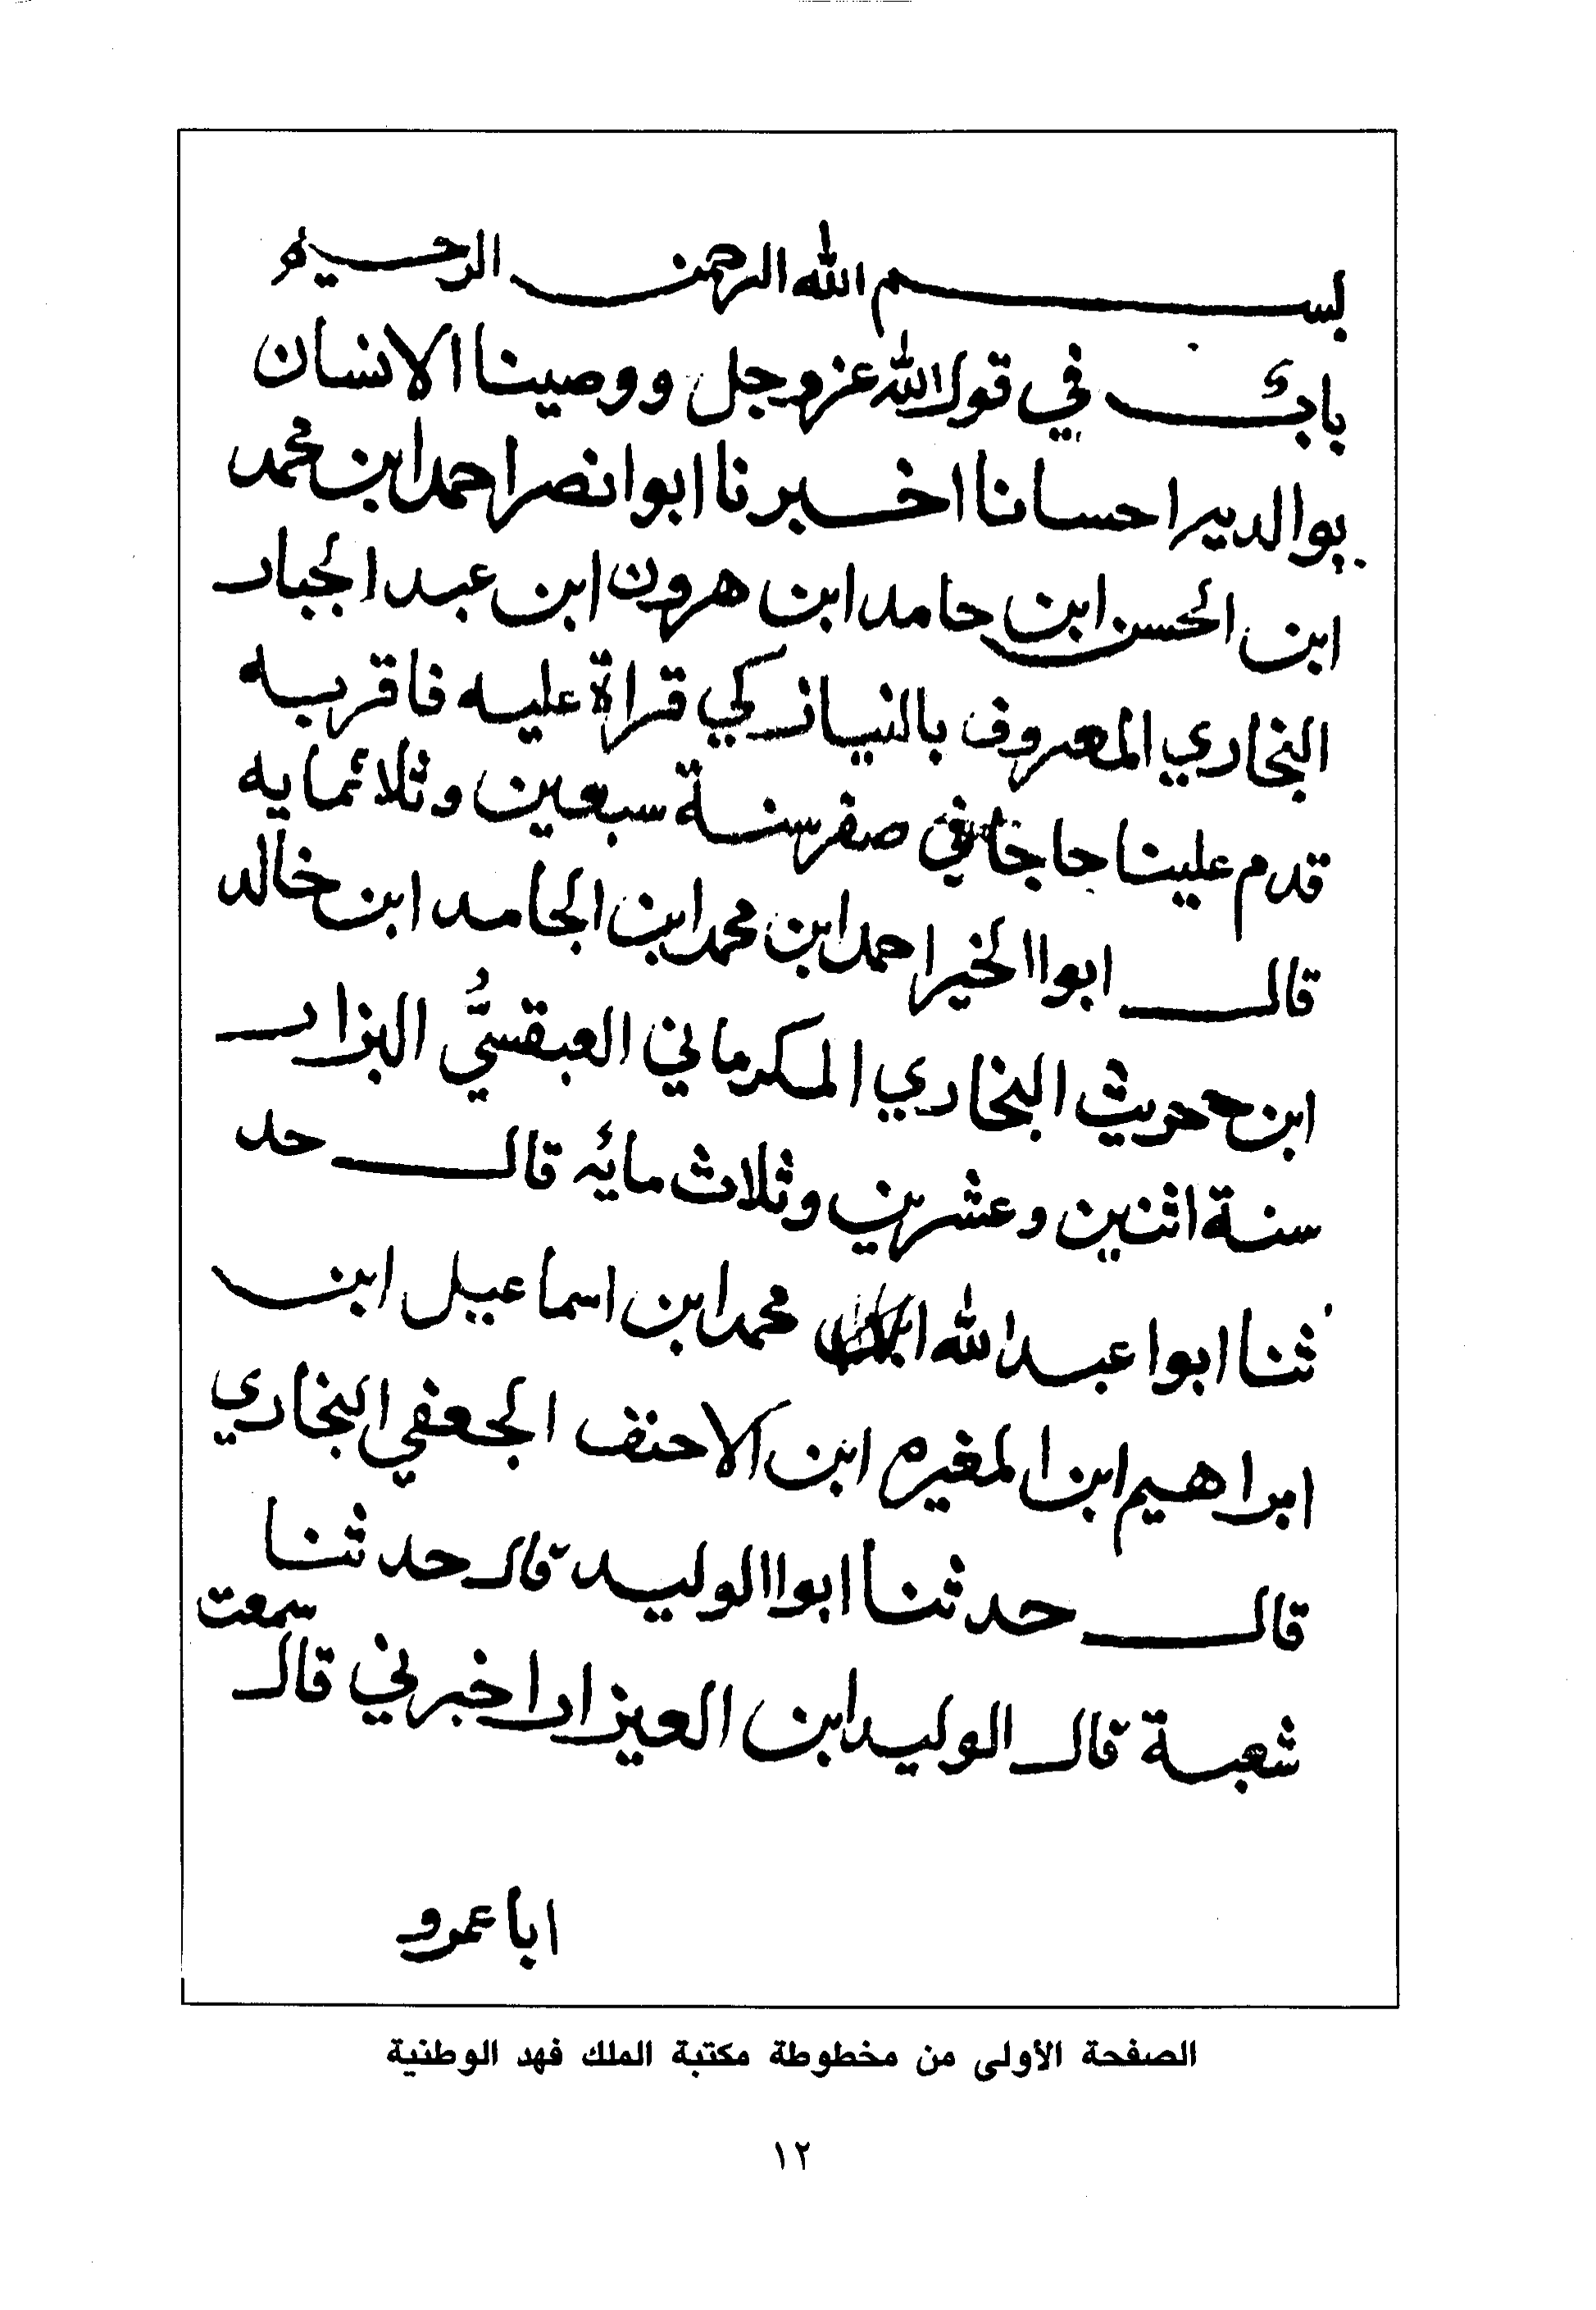 بسم الله الرحمن الرحيم
باب في قول الله عز وجل ووصينا الانسان
بوالديه احسانا اخبرنا ابوا نصر احمد ابن محمد
ابن الحسن ابن حامد ابن هرون ابن عبد الجبار
البخاري المعروف بالنيازكي قراة عليه فاقر به
قدم علينا حاجا في صفر سنة سبعين وثلاثمايه
قال ابوا الخير احمد ابن محمد ابن الجامد ابن خالد
ابن حريث البخاري الكرماني العبقسيُّ البزار
سنة اثنين وعشرين وثلاث مائه قال حد
ثنا ابوا عبد الله محمد ابن اسماعيل ابن
ابراهيم ابن المغيره ابن الاحنف الجعفي البخاري
قال حدثنا ابوا الوليد قال حدثنا
شعبة قال الوليد ابن العيزار اخبرني قال سمعت
ابا عمرو
الصفحة الأولى من مخطوطة مكتبة الملك فهد الوطنية
١٢